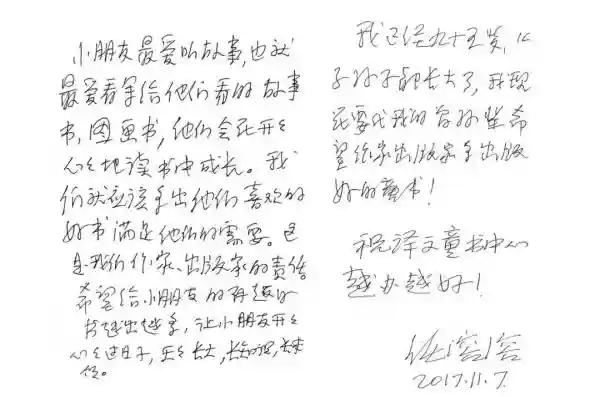 小朋友最爱听故事,也就
最爱看写给他们看的故事
书,图画书,他们会在开开
心心地读书中成长。我
们就应该拿出他们喜欢的
好书满足他们的需要。这
是我们作家、出版家的责任
希望给小朋友的有趣的
书越出越多,让小朋友开开
心心过日子,天天长大,长知识,长本
领。
我已经九十五岁,儿
子孙子都长大了,我现
在要代我的曾孙辈希
望作家出版家多出版
好的童书!
祝译文童书中心
越办越好!
任溶溶
2017.11.7.